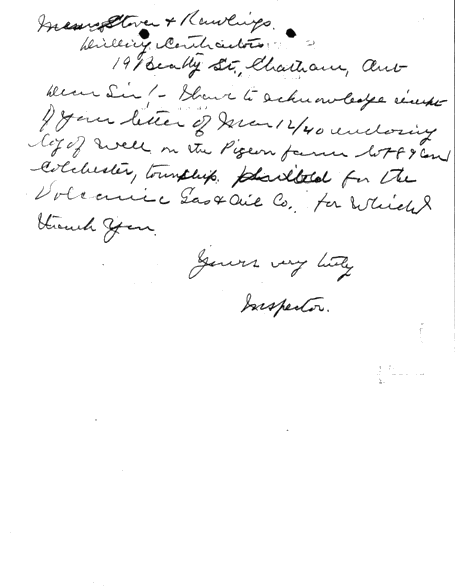 Messrs Stover & Rawlings.
Drilling Contractors
19 Beatty St., Chatham, Ont
Dear Sir! - I have to acknowledge receipt
of your letter of Mar 12/40 enclosing
log of well on the Pigeon farm lot 89 Con
Colchester, township. drilled for the
Volcanic Gas & Oil Co., for which I
thank You.
Yours very truly
Inspector.